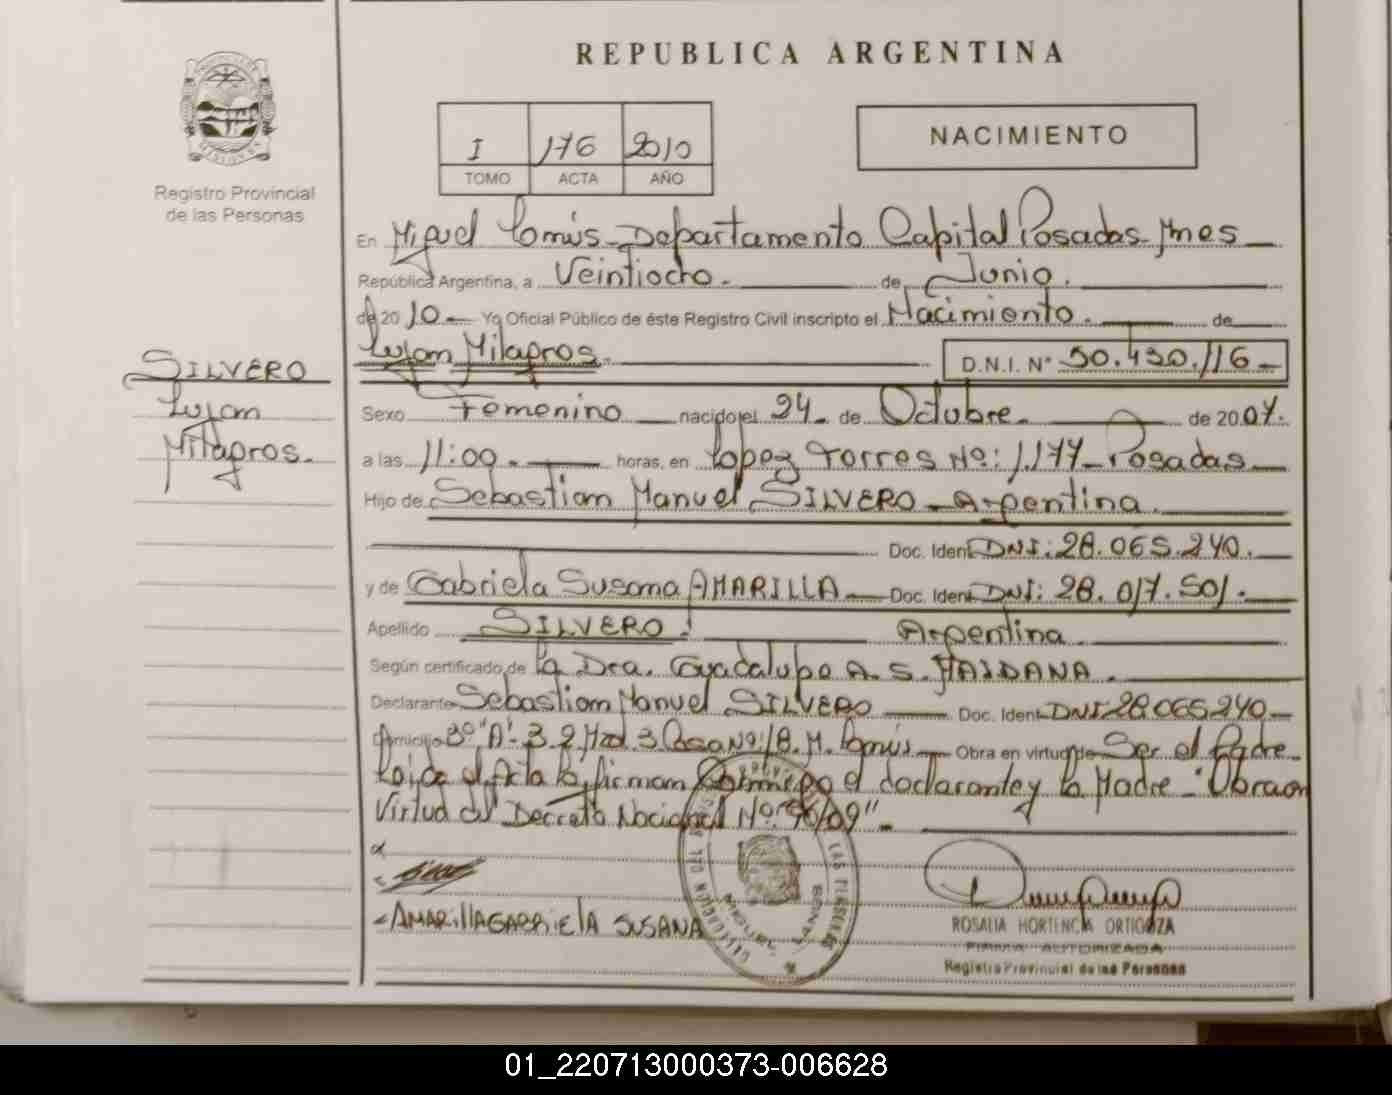 REPUBLICA ARGENTINA
I 176 2010
TOMO ACTA AÑO
NACIMIENTO
Registro Provincial
de las Personas
En Miguel Lanús Departamento Capital Posadas Mnes
República Argentina, a Veintiocho de Junio.
de 20 10 Yo Oficial Público de éste Registro Civil inscripto el Nacimiento. de
Lujan Milagros. D.N.I. Nº 50.430.116
SILVERO
Lujan
Milagros.
Sexo Femenino nacido el 24 de Octubre de 2007.
a las 11:00 horas, en Lopez Torres Nº: 1.177 Posadas
Hijo de Sebastian Manuel SILVERO Argentina
Doc. Ident. DNI: 28.065.240.
y de Gabriela Susana AMARILLA Doc. Ident. DNI: 28.017.501.
Apellido SILVERO. Argentina.
Según certificado de la Dra. Guadalupe A. S. MAIDANA.
Declarante Sebastian Manuel SILVERO Doc. Ident. DNI 28.065.240
Domicilio Bº "A" 3.2 3 Casa Nº 18. M. Lanús Obra en virtud de Ser el Padre
Leida el Acta la firman Conmigo el declarante y la Madre - "Obra en
Virtud del Decreto Nacional Nº: 90/09"
AMARILLA GABRIELA SUSANA
ROSALIA HORTENCIA ORTIGOZA
FIRMA AUTORIZADA
Registro Provincial de las Personas
MIGUEL LANUS
01_220713000373-006628